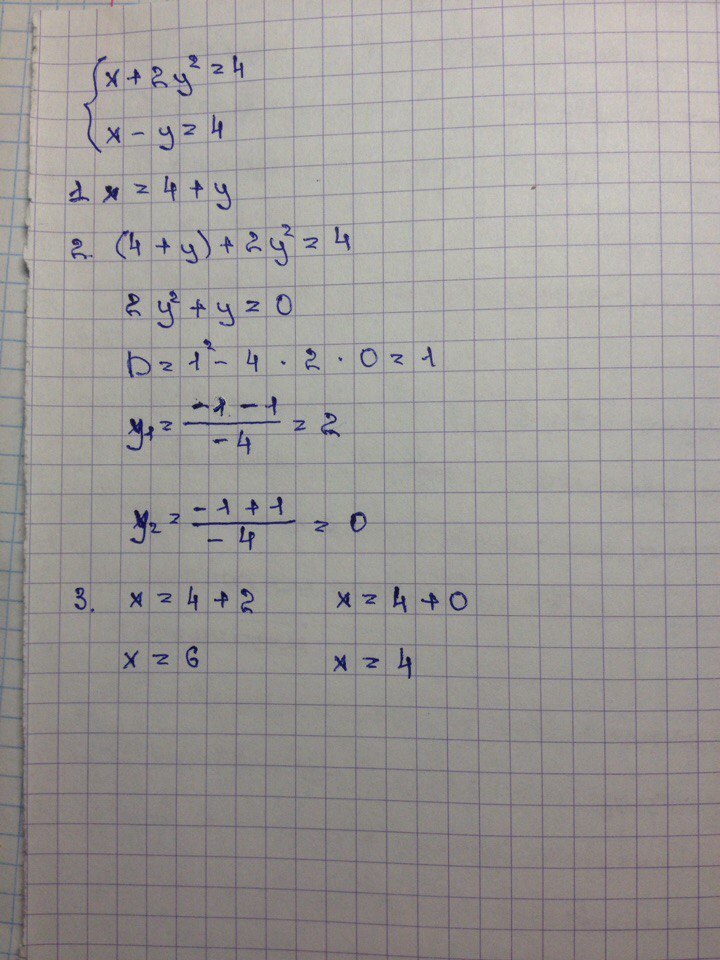 { x + 2y² = 4
x - y = 4
1 x = 4 + y
2. (4 + y) + 2y² = 4
2y² + y = 0
D = 1² - 4 · 2 · 0 = 1
y₁ = (-1 - 1)/(-4) = 2
y₂ = (-1 + 1)/(-4) = 0
3. x = 4 + 2 x = 4 + 0
x = 6 x = 4